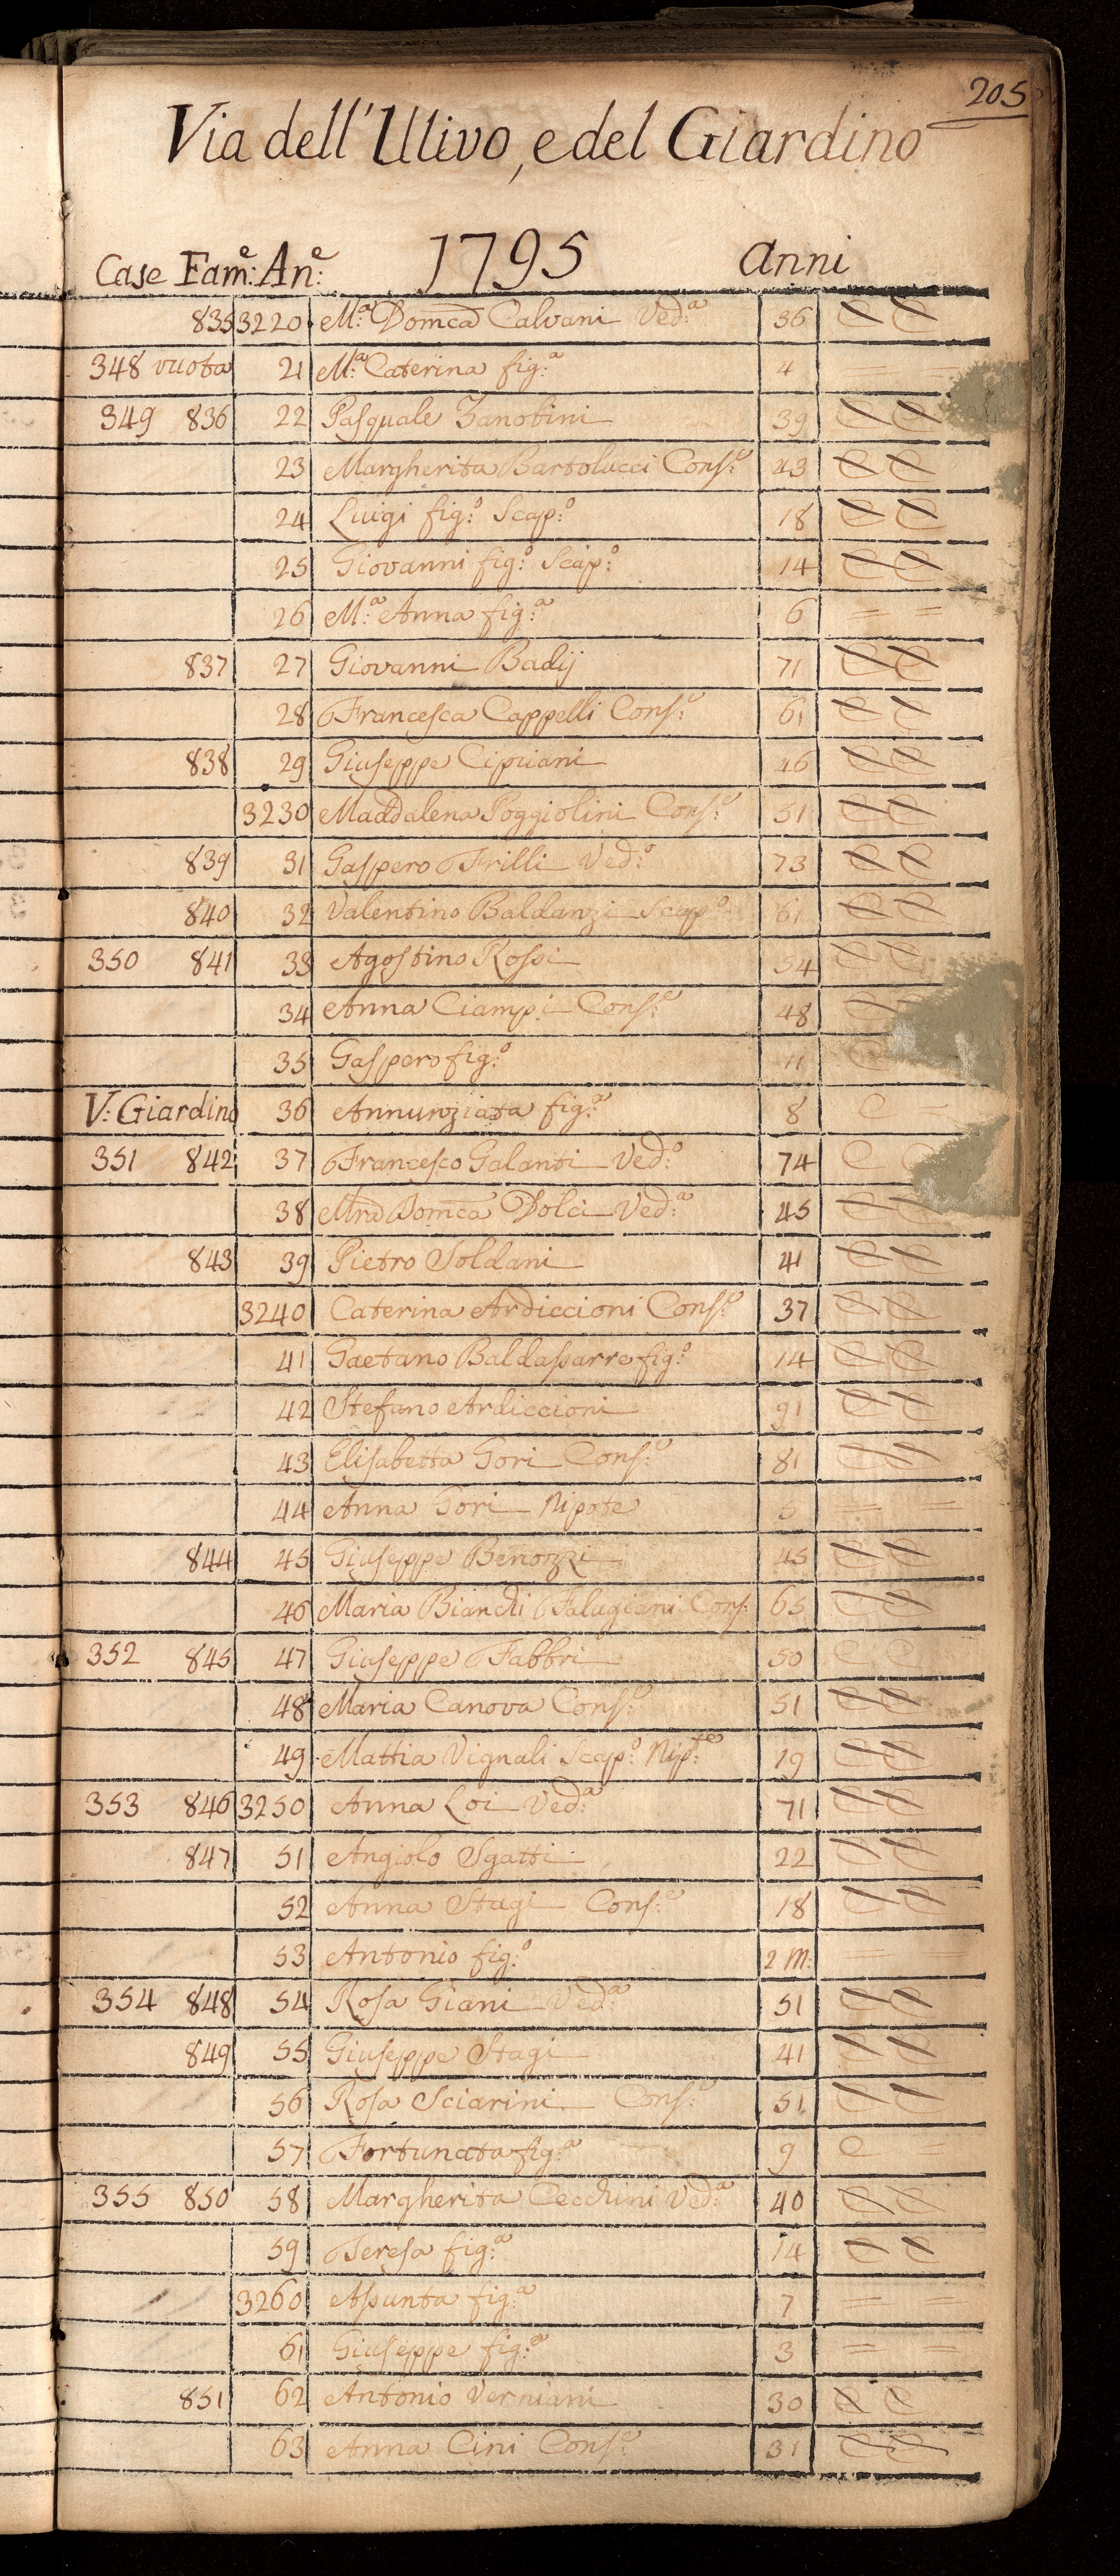 205
Via dell'Ulivo, e del Giardino
Case Fam.e: An.e: 1795 anni
835 3220 M.a Domca Calvani Ved.a 36 C C
348 vuota 21 M.a Caterina fig.a 4
349 836 22 Pasquale Zanobini 39 C C
23 Margherita Bartolucci Cons.e 43 C C
24 Luigi fig.o Scap.o 18 C C
25 Giovanni fig.o Scap.o 14 C C
26 M.a Anna fig.a 6 = =
837 27 Giovanni Badij 71 C C
28 Francesca Cappelli Cons.e 61 C C
838 29 Giuseppe Cipriani 46 C C
3230 Maddalena Poggiolini Cons.e 51 C C
839 31 Gaspero Frilli Ved.o 73 C C
840 32 Valentino Baldanzi Scap.o 61 C C
350 841 33 Agostino Rossi 54 C C
34 Anna Ciampi Cons.e 48 C
35 Gaspero fig.o 11 C
V: Giardino 36 Annunziata fig.a 8 C =
351 842 37 Francesco Galanti Ved.o 74 C C
38 Domca Dolci Ved.a 45 C C
843 39 Pietro Soldani 41 C C
3240 Caterina Ardiccioni Cons.e 37 C C
41 Gaetano Baldassarre fig.o 14 C C
42 Stefano Ardiccioni 91 C C
43 Elisabetta Gori Cons.e 81 C C
44 Anna Gori Nipote 5 = =
844 45 Giuseppe Benozzi 45 C C
46 Maria Bianchi Falugiani Cons: 65 C C
352 845 47 Giuseppe Fabbri 50 C C
48 Maria Canova Cons.e 51 C C
49 Mattia Vignali Scap.o Nip.te 19 C C
353 846 3250 Anna Loi Ved.a 71 C C
847 51 Angiolo Sgatti 22 C C
52 Anna Stagi Cons.e 18 C C
53 Antonio fig.o 2 M: = =
354 848 54 Rosa Giani Ved.a 51 C C
849 55 Giuseppe Stagi 41 C C
56 Rosa Sciarini Cons.e 51 C C
57 Fortunata fig.a 9 C =
355 850 58 Margherita Cecchini Ved.a 40 C C
59 Teresa fig.a 14 C C
3260 Assunta fig.a 7 = =
61 Giuseppe fig.a 3 = =
851 62 Antonio Verniani 30 C C
63 Anna Cini Cons.e 31 C C